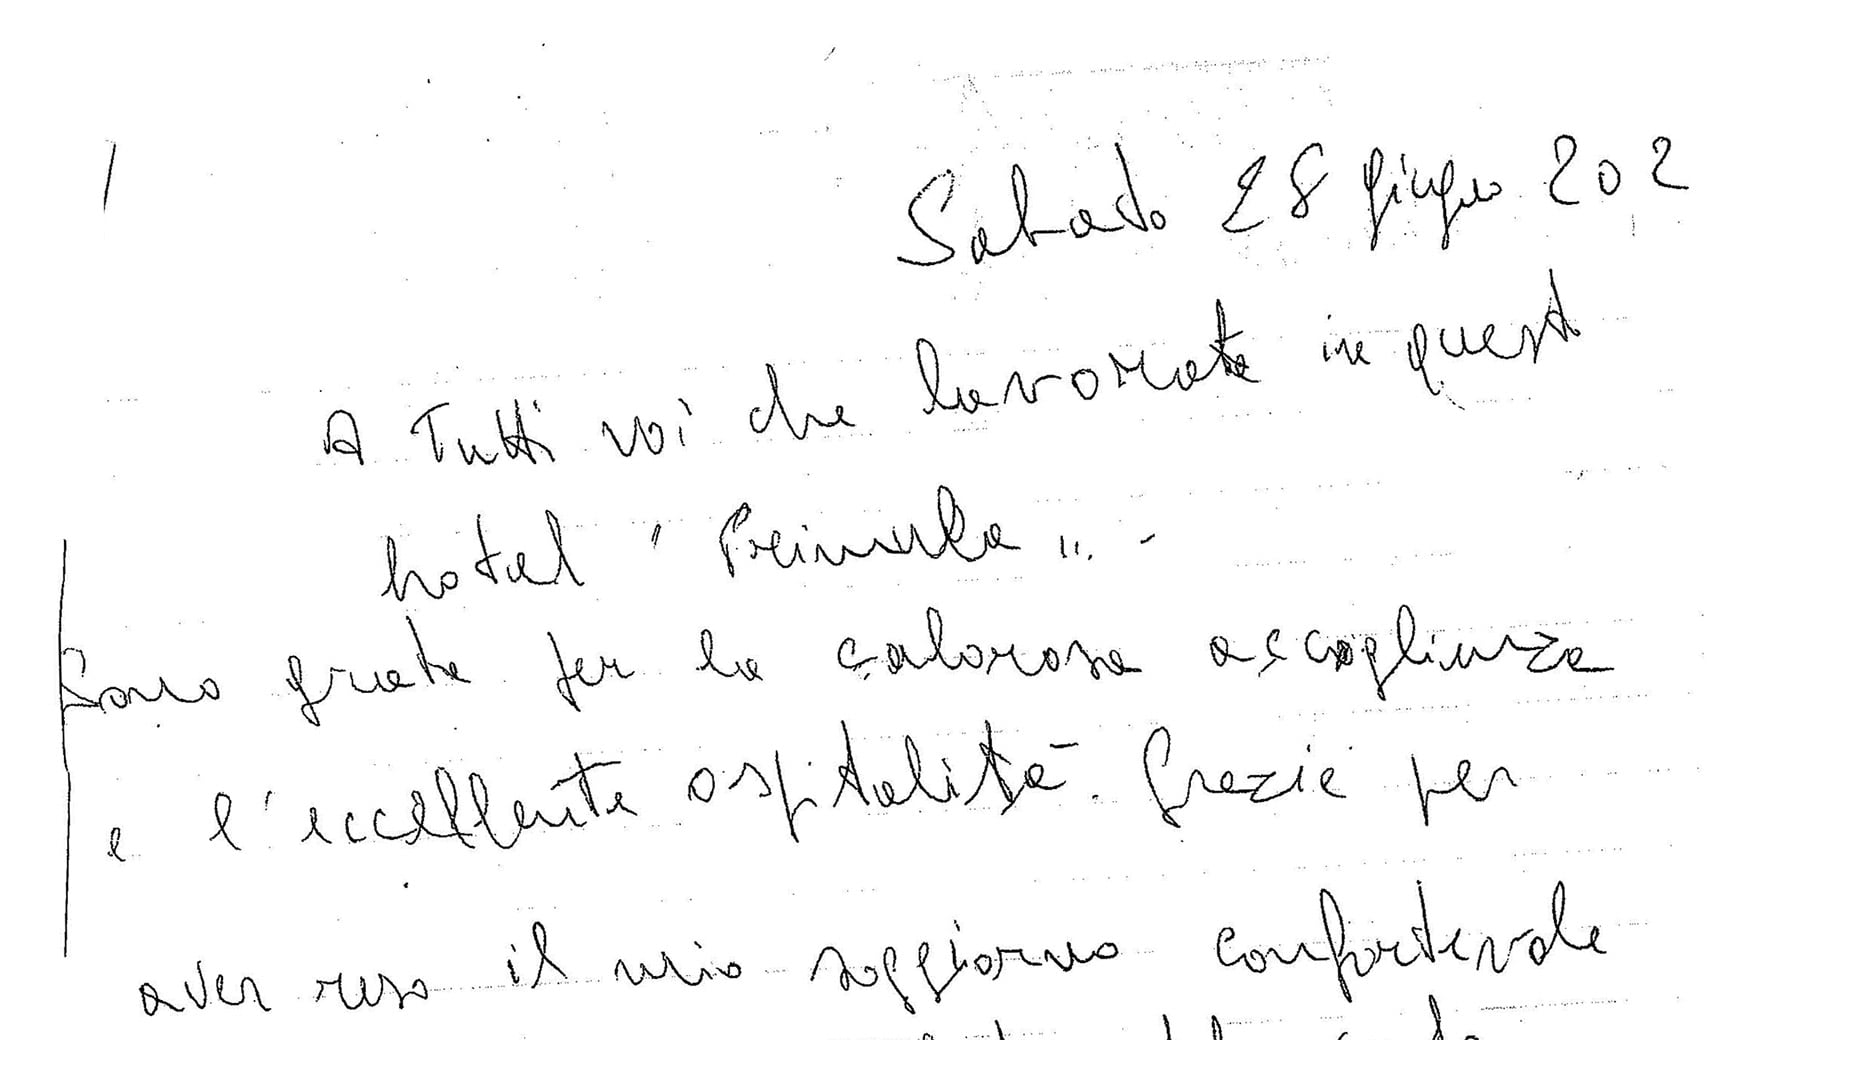 Sabado 28 giugno 202
A Tutti voi che lavorate in quest
hotel "Primula". -
Sono grata per la calorosa accoglienza
e l'eccellente ospitalità. Grazie per
aver reso il mio soggiorno confortevole